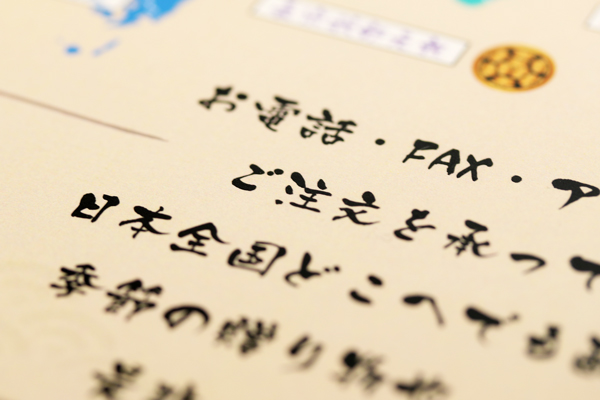 お電話・FAX・ア
ご注文を承って
日本全国どこへでも
季節の贈り物